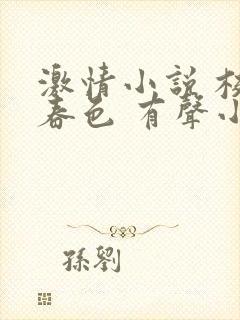 激情小說 校
春色 有聲小
孫劉